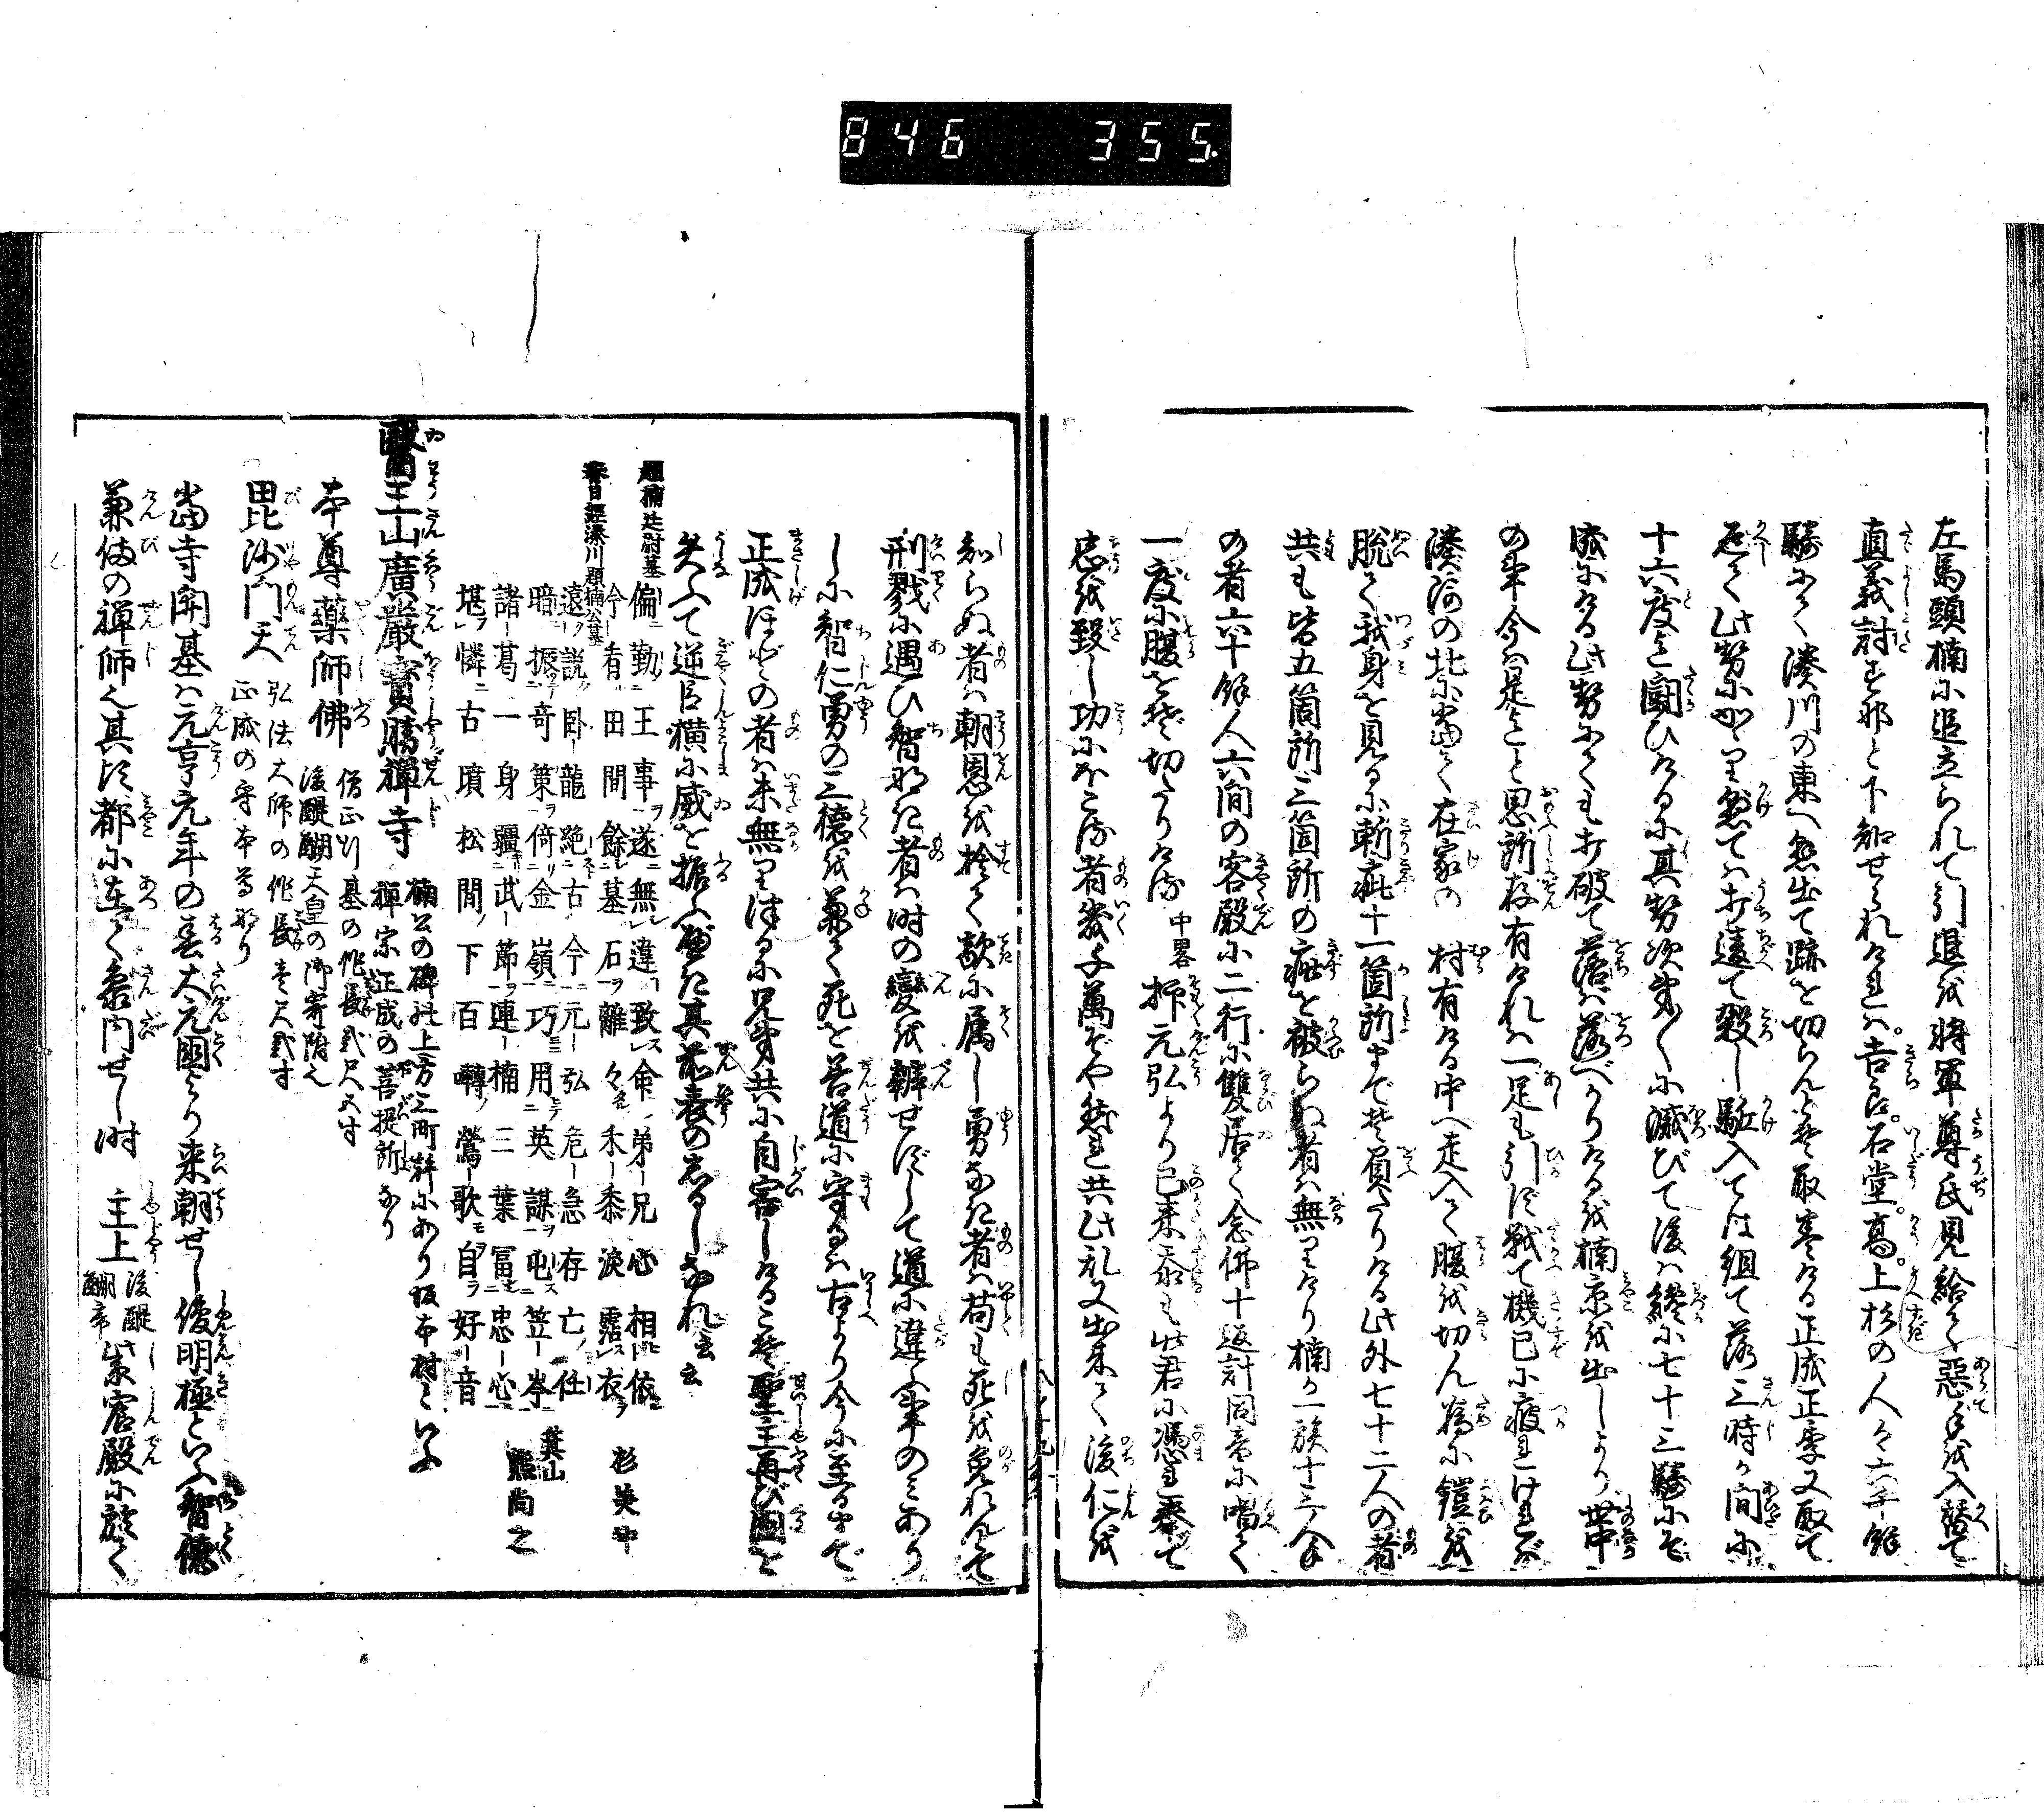 846 355.
左馬頭楠に追立られて引退を將軍尊氏見給て惡手を入替て
直義討すなと下知せられければ。吉良。石堂。高。上杉の人々六千餘
騎にて湊川の東へ懸出て跡を切らんとぞ取巻ける正成正季又取て
返て此勢にかゝり懸ては打違て殺し駈入ては組て落三時が間に
十六度まで闘ひけるに其勢次第〳〵に滅びて後は纔に七十三騎にぞ
成にける此勢にても打破て落ば落べかりけるを楠京を出しより世中
の事今は是までと思所存有ければ一足も引ず戰て機已に疲れければ
湊河の北に當て在家の一村有ける中へ走入て腹を切ん爲に鎧を
脱て我身を見るに斬疵十一箇所までぞ負たりける此外七十二人の者
共も皆五箇所三箇所の疵を被らぬ者は無りけり楠が一族十三人手
の者六十餘人六間の客殿に二行に雙居て念佛十返計同音に唱て
一度に腹をぞ切たりける 中畧 抑元弘より已來忝も此君に憑まれ奉て
忠を致し功にほこる者幾千萬ぞや然れ共此乱又出來て後仁を
知らぬ者は朝恩を捨て敵に屬し勇なき者は苟も死を免れんとて
刑戮に遇ひ智なき者は時の變を辨せずして道に違ふ事のみあり
しに智仁勇の三德を兼て死を善道に守るは古より今に至るまで
正成ほどの者は未無りつるに兄弟共に自害しけるこそ聖主再び國を
失て逆臣横に威を振ふべき其前表のしるしなれ云云
題楠廷尉墓
偏勤王事遂無違 致命弟兄心相依
今看田間餘墓石 離々禾黍淚霑衣 杉美中
春日經湊川顧楠公墓
遠說臥龍絶古今 元弘危急存亡任
暗振奇策倚金嶺 巧用英謀屯笠岑
諸葛一身彊武節 連楠三葉冨忠心
堪憐古墳松間下 百囀鶯歌自好音 箕山熊尚之
醫王山廣嚴寳勝禪寺 楠公の碑北上方三町許にあり坂本村といふ
禪宗正成の菩提所なり
本尊藥師佛 僧正行基の作長弐尺五寸
後醍醐天皇の御寄附也
毘沙門天 弘法大師の作長壱尺弐寸
正成の守本尊なり
當寺開基は元亨元年の春大元國より來朝せし俊明極といふ智德
兼備の禪師也其比都に在て參内せし時 主上 後醍醐帝 紫宸殿に於て